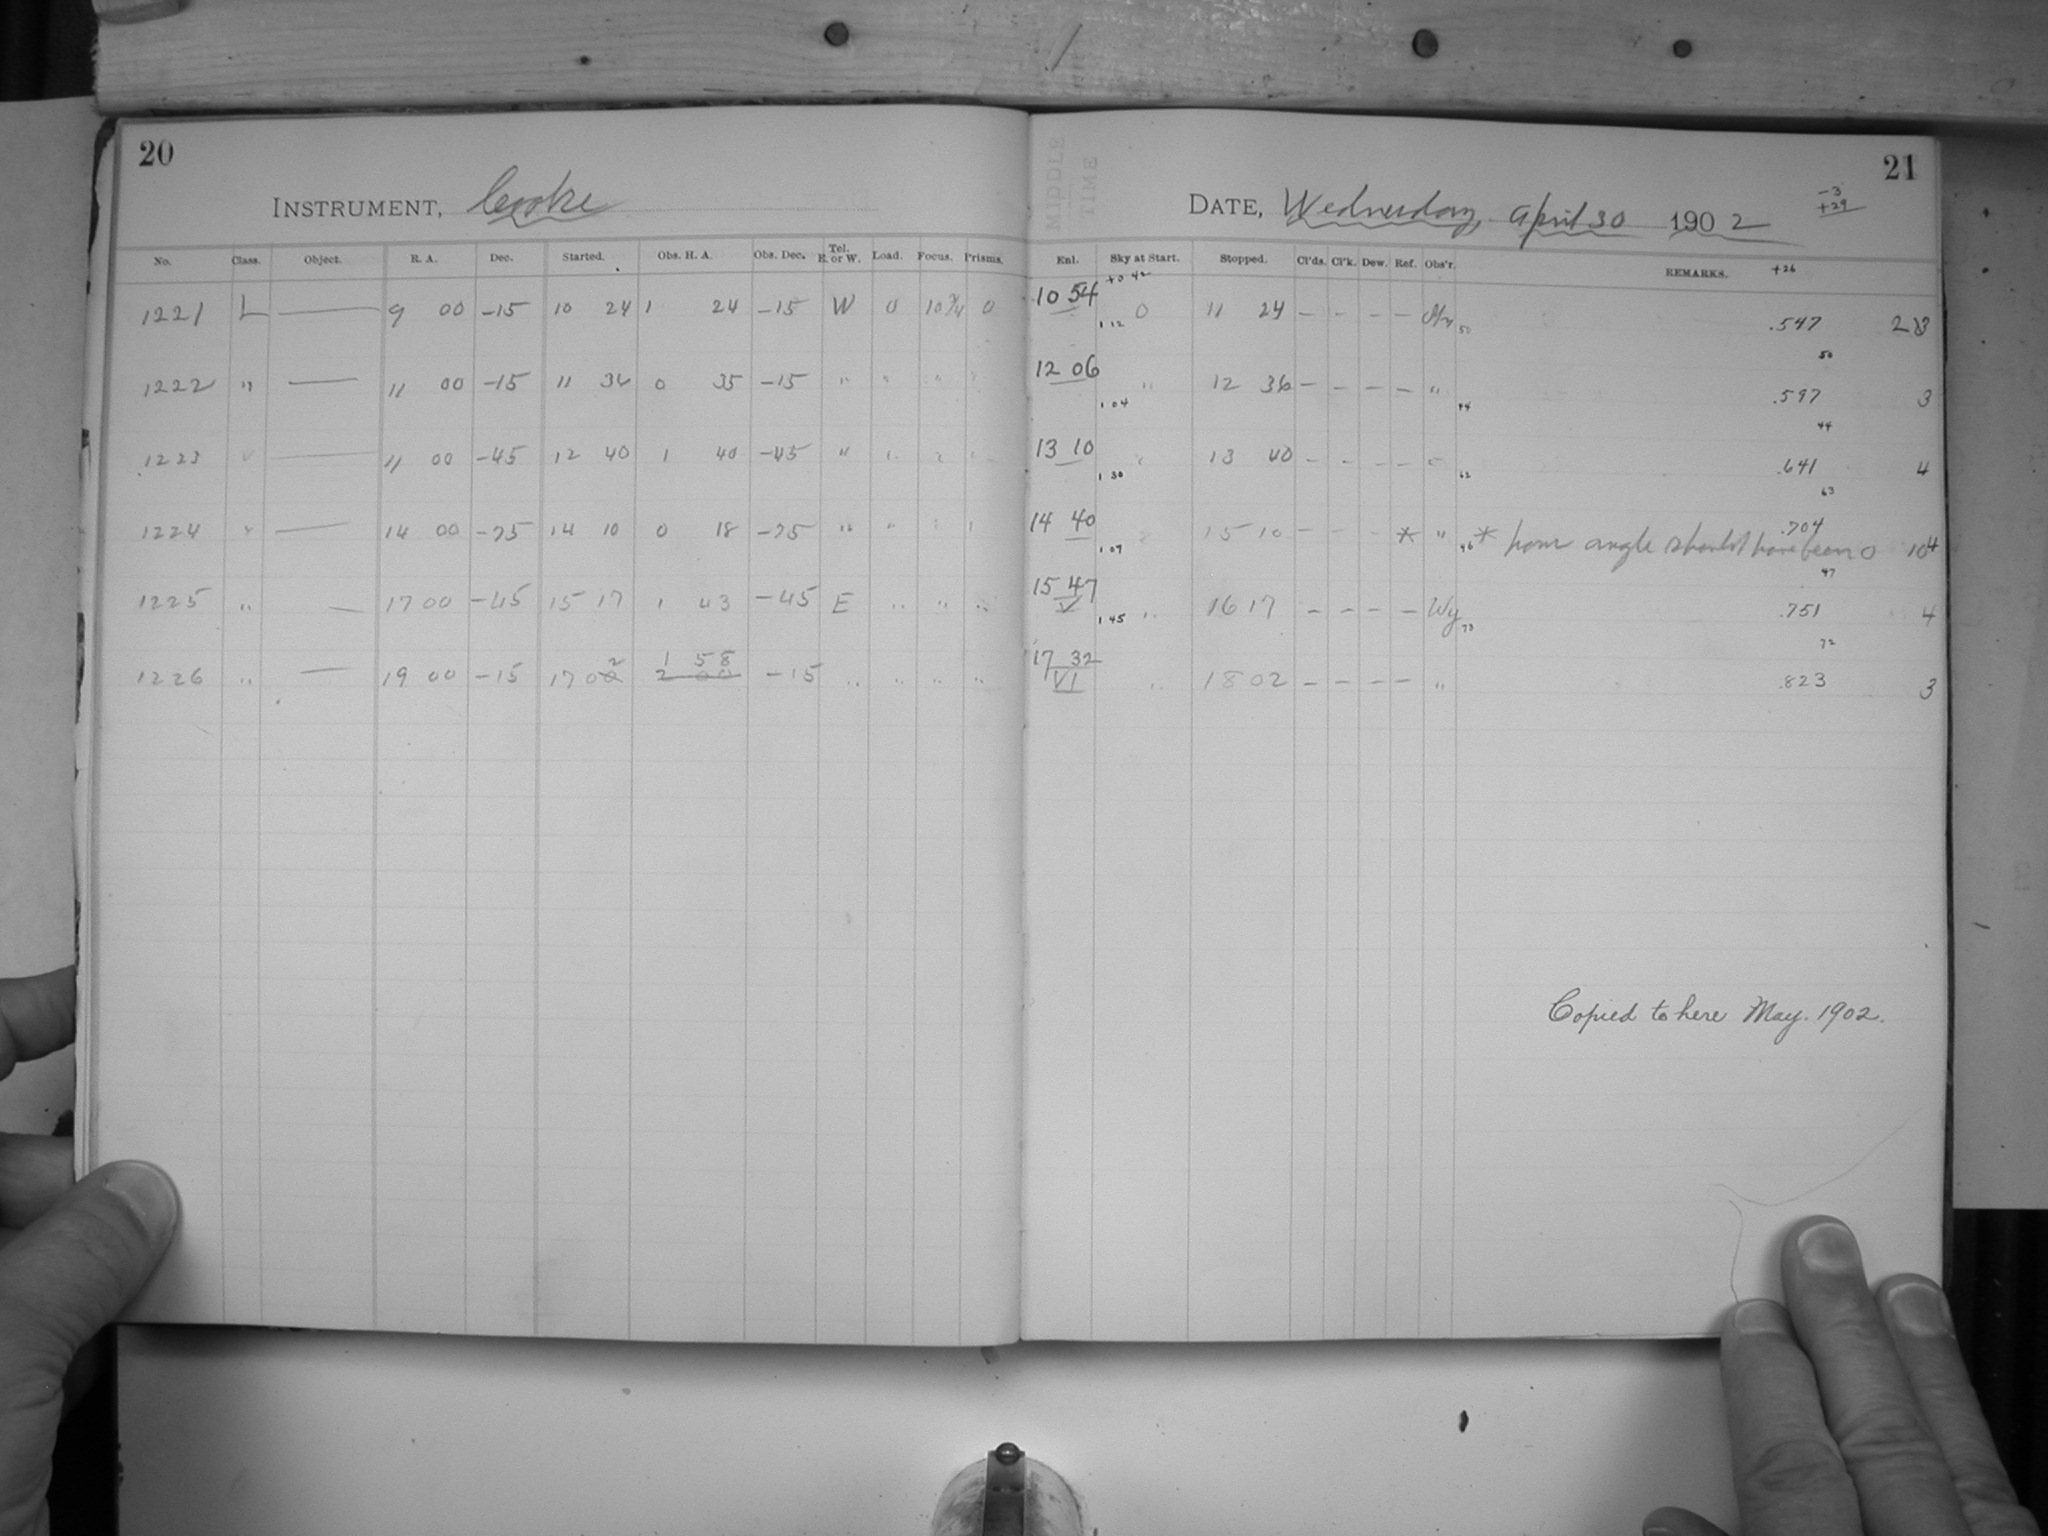 20
INSTRUMENT, Cooke
No. Class. Object. R. A. Dec. Started. Obs. H. A. Obs. Dec. Tel. E. or W. Load. Focus. Prisms.
1221 L — 9 00 -15 10 24 1 24 -15 W 0 10 3/4 0
1222 " — 11 00 -15 11 36 0 35 -15 " " " "
1223 " — 11 00 -45 12 40 1 40 -45 " " " "
1224 " — 14 00 -75 14 10 0 18 -75 " " " "
1225 " — 17 00 -45 15 17 1 43 -45 E " " "
1226 " — 19 00 -15 17 02 1 58 -15 " " " "
2 00
MIDDLE TIME
21
DATE, Wednesday, April 30 1902
-3
+29
Enl. Sky at Start. Stopped. Cl'ds. Cl'k. Dew. Ref. Obs'r. REMARKS. +26
+0 42
10 54 0 11 24 — — — — .547
1 12 50
50
12 06 " 12 36 — — — — " .597 3
1 04 44
44
13 10 " 13 40 — — — — " .641 4
1 30 62
63
14 40 " 15 10 — — — * " .704
1 07 46 * hour angle should have been 0 104
47
15 47 V " 16 17 — — — — Wy .751 4
1 45 73
72
17 32 VI " 18 02 — — — — " .823 3
Copied to here May. 1902.